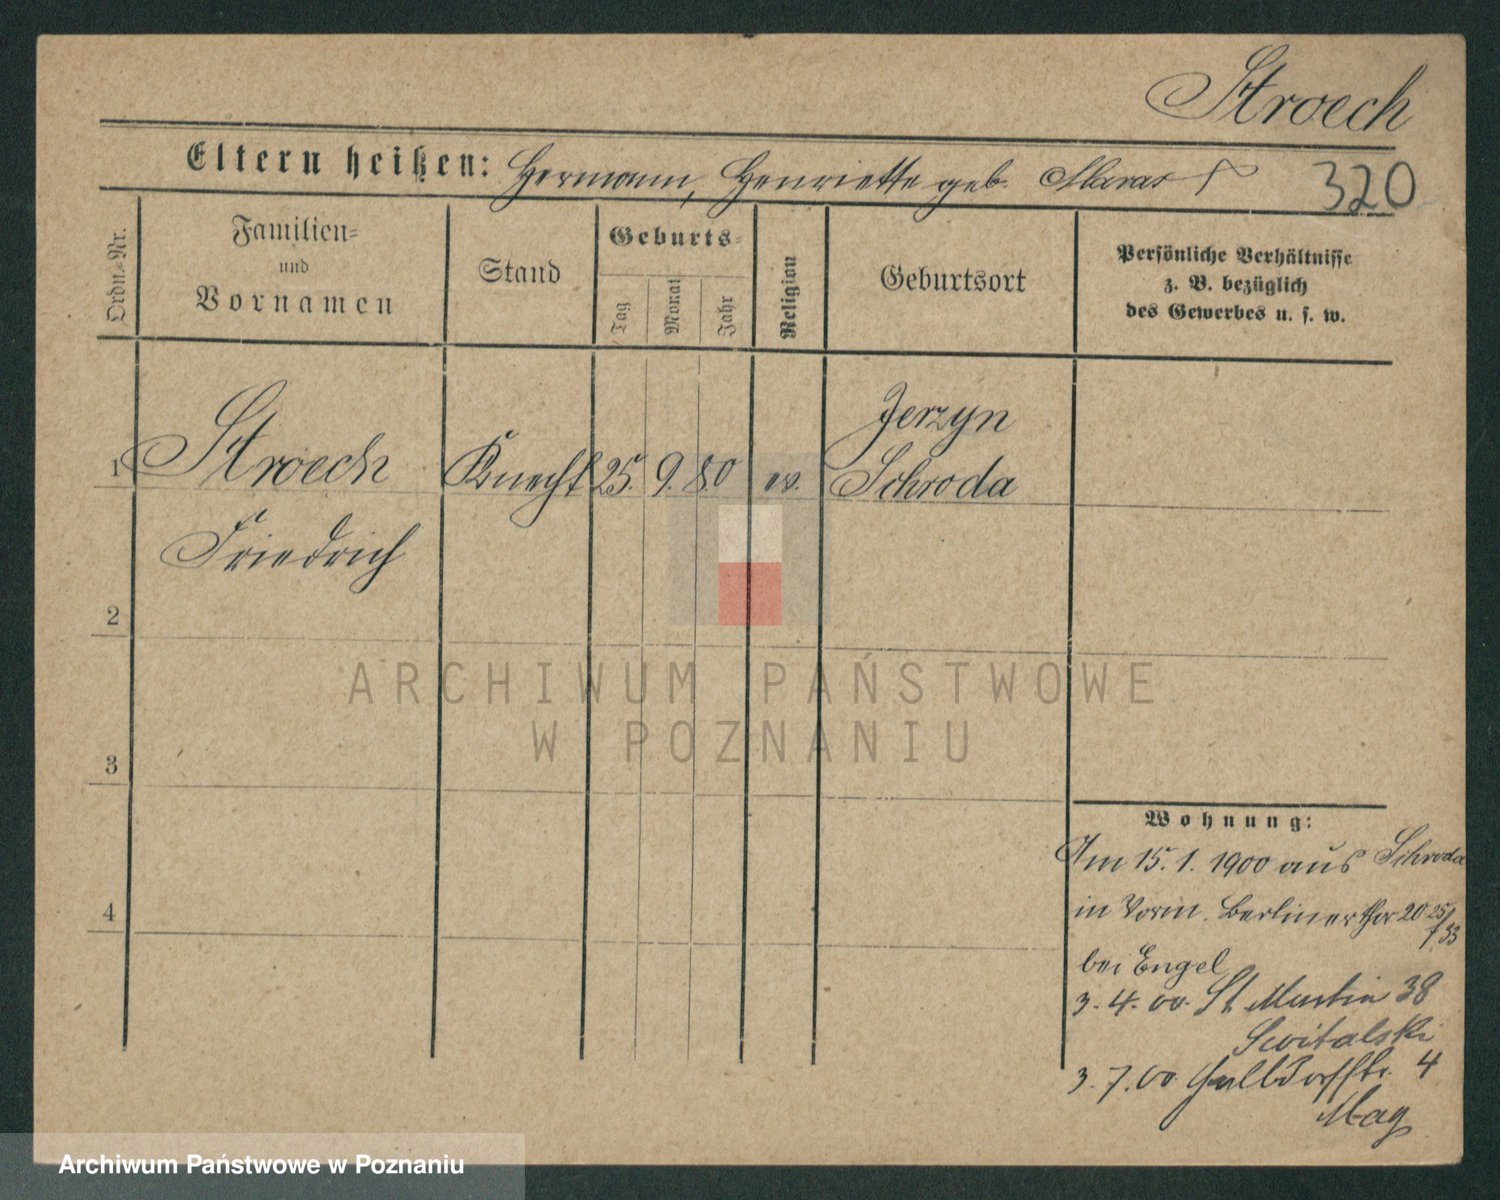 Stroech
Eltern heißen: Hermann, Henriette geb.
320
Ordn.-Nr.
Familien-
und
Vornamen
Stand
Geburts-
Tag
Monat
Jahr
Religion
Geburtsort
Persönliche Verhältnisse
z. B. bezüglich
des Gewerbes u. s. w.
Jerzyn
1 Stroech Knecht 25. 9. 80 ev. Schroda
Friedrich
2
3
4
ARCHIWUM PAŃSTWOWE
W POZNANIU
Wohnung:
Am 15. 1. 1900 aus Schroda
in Berliner Thor 20
bei Engel
3. 4. 00. St Martin 38
Switalski
3. 7. 00. 4
May
Archiwum Państwowe w Poznaniu